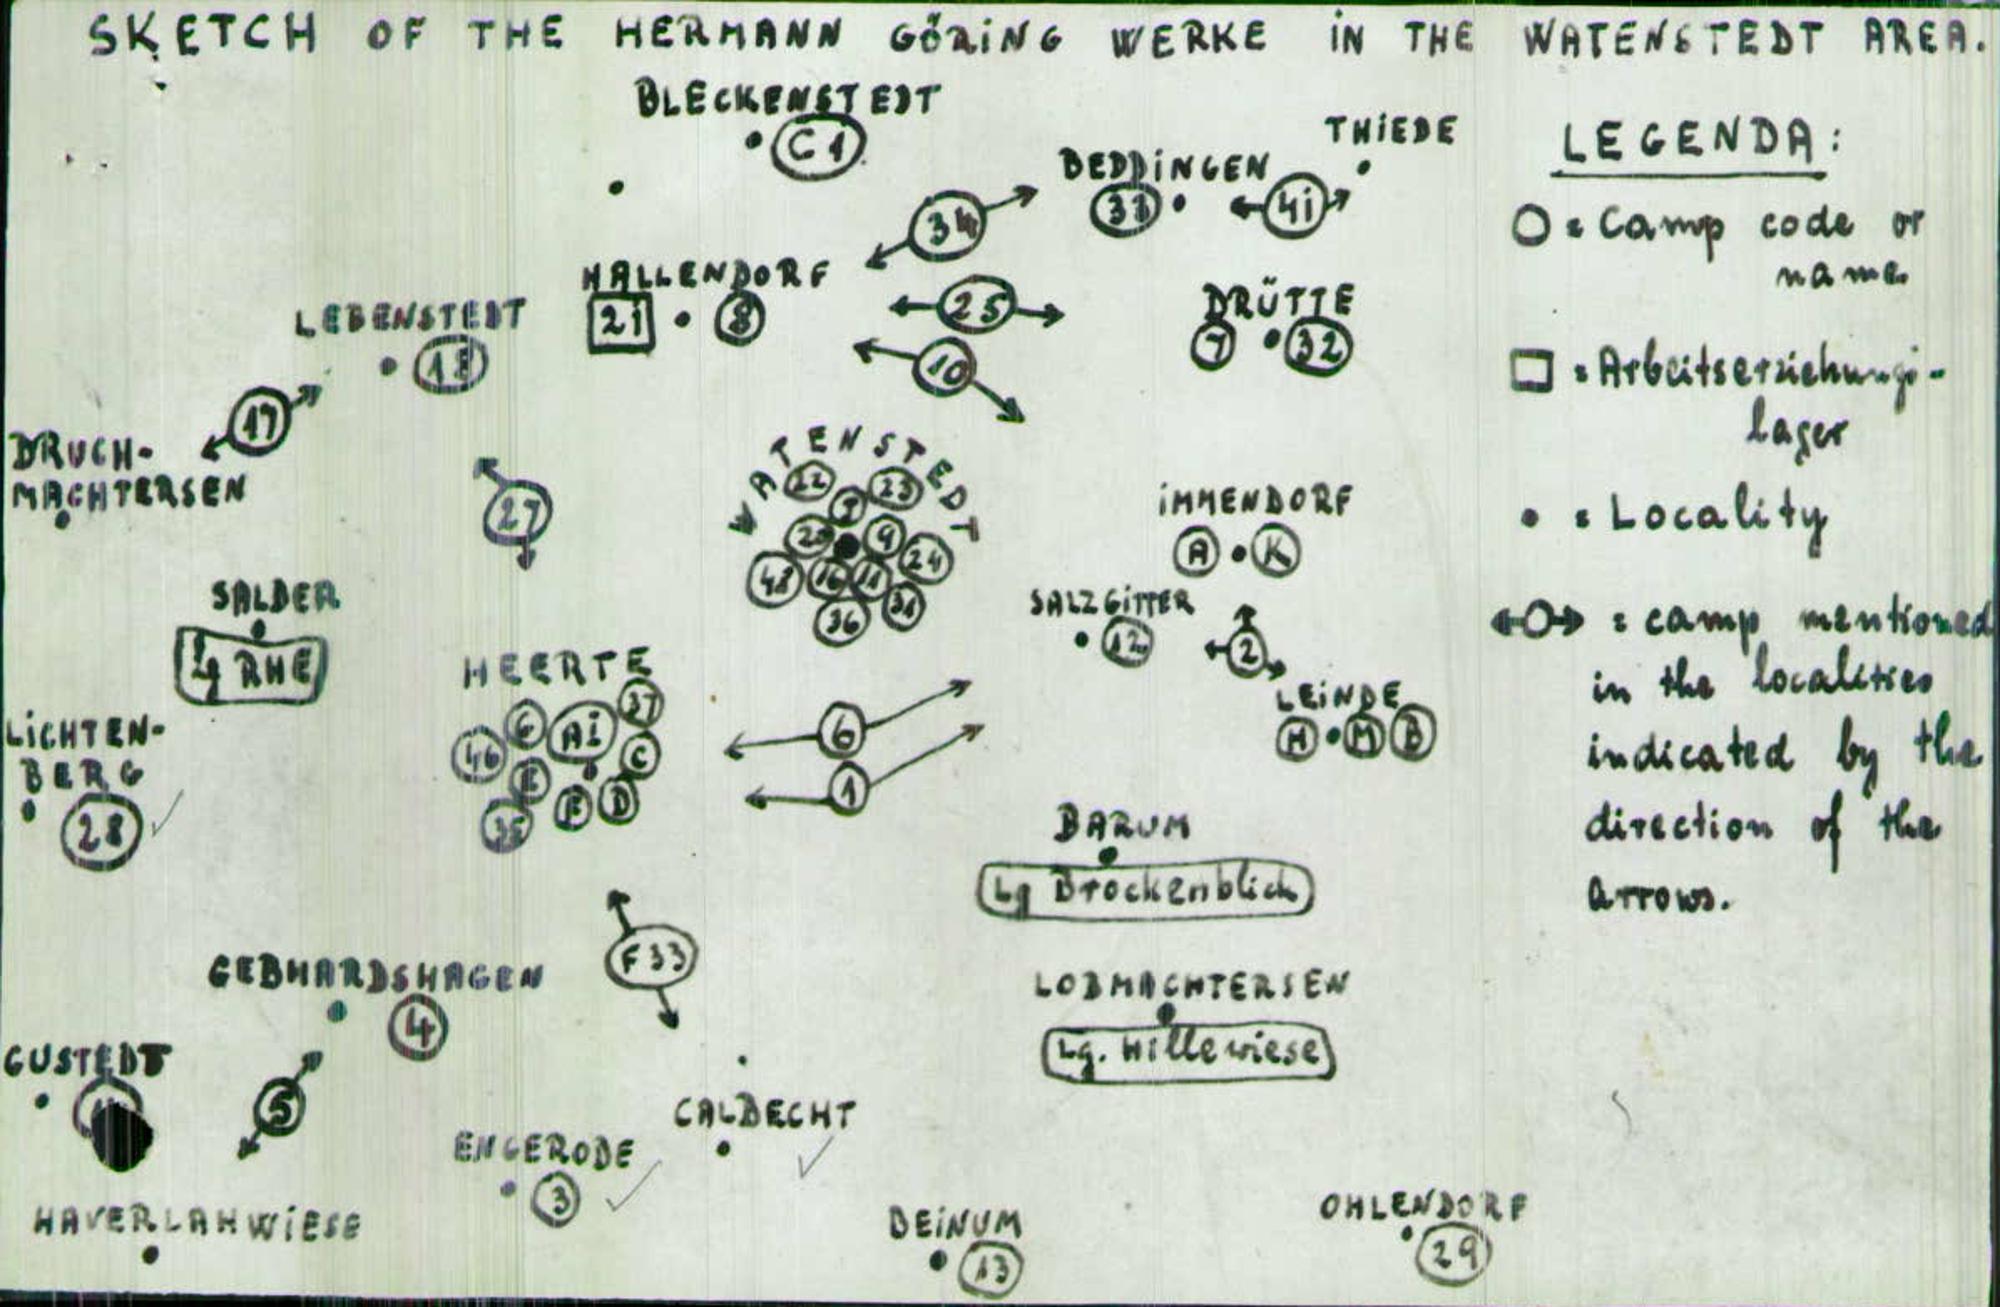 SKETCH OF THE HERMANN GÖRING WERKE IN THE WATENSTEDT AREA.
BLECKENSTEDT
C1
THIEDE
BEDDINGEN
33
41
34
HALLENDORF
21
8
25
10
DRÜTTE
7
32
LEBENSTEDT
18
17
DRUCH-
MACHTERSEN
27
WATENSTEDT
22
23
9
24
20
48
16
11
31
36
IMMENDORF
A
K
SALZGITTER
12
2
LEINDE
H
M
B
SALDER
Lg RHE
HEERTE
37
G
AI
46
C
E
F
D
35
6
1
LICHTEN-
BERG
28
BARUM
Lg Brockenblick
F33
GEBHARDSHAGEN
4
LOBMACHTERSEN
Lg. Hillewiese
GUSTEDT
5
CALBECHT
ENGERODE
3
HAVERLAHWIESE
BEINUM
13
OHLENDORF
29
LEGENDA:
= Camp code or
name
= Arbeitserziehungs-
lager
= Locality
= camp mentioned
in the localities
indicated by the
direction of the
arrows.